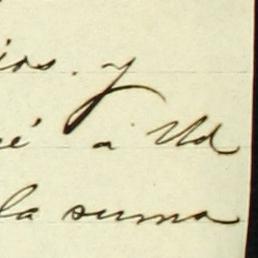 ios. y
é a Ud
la suma